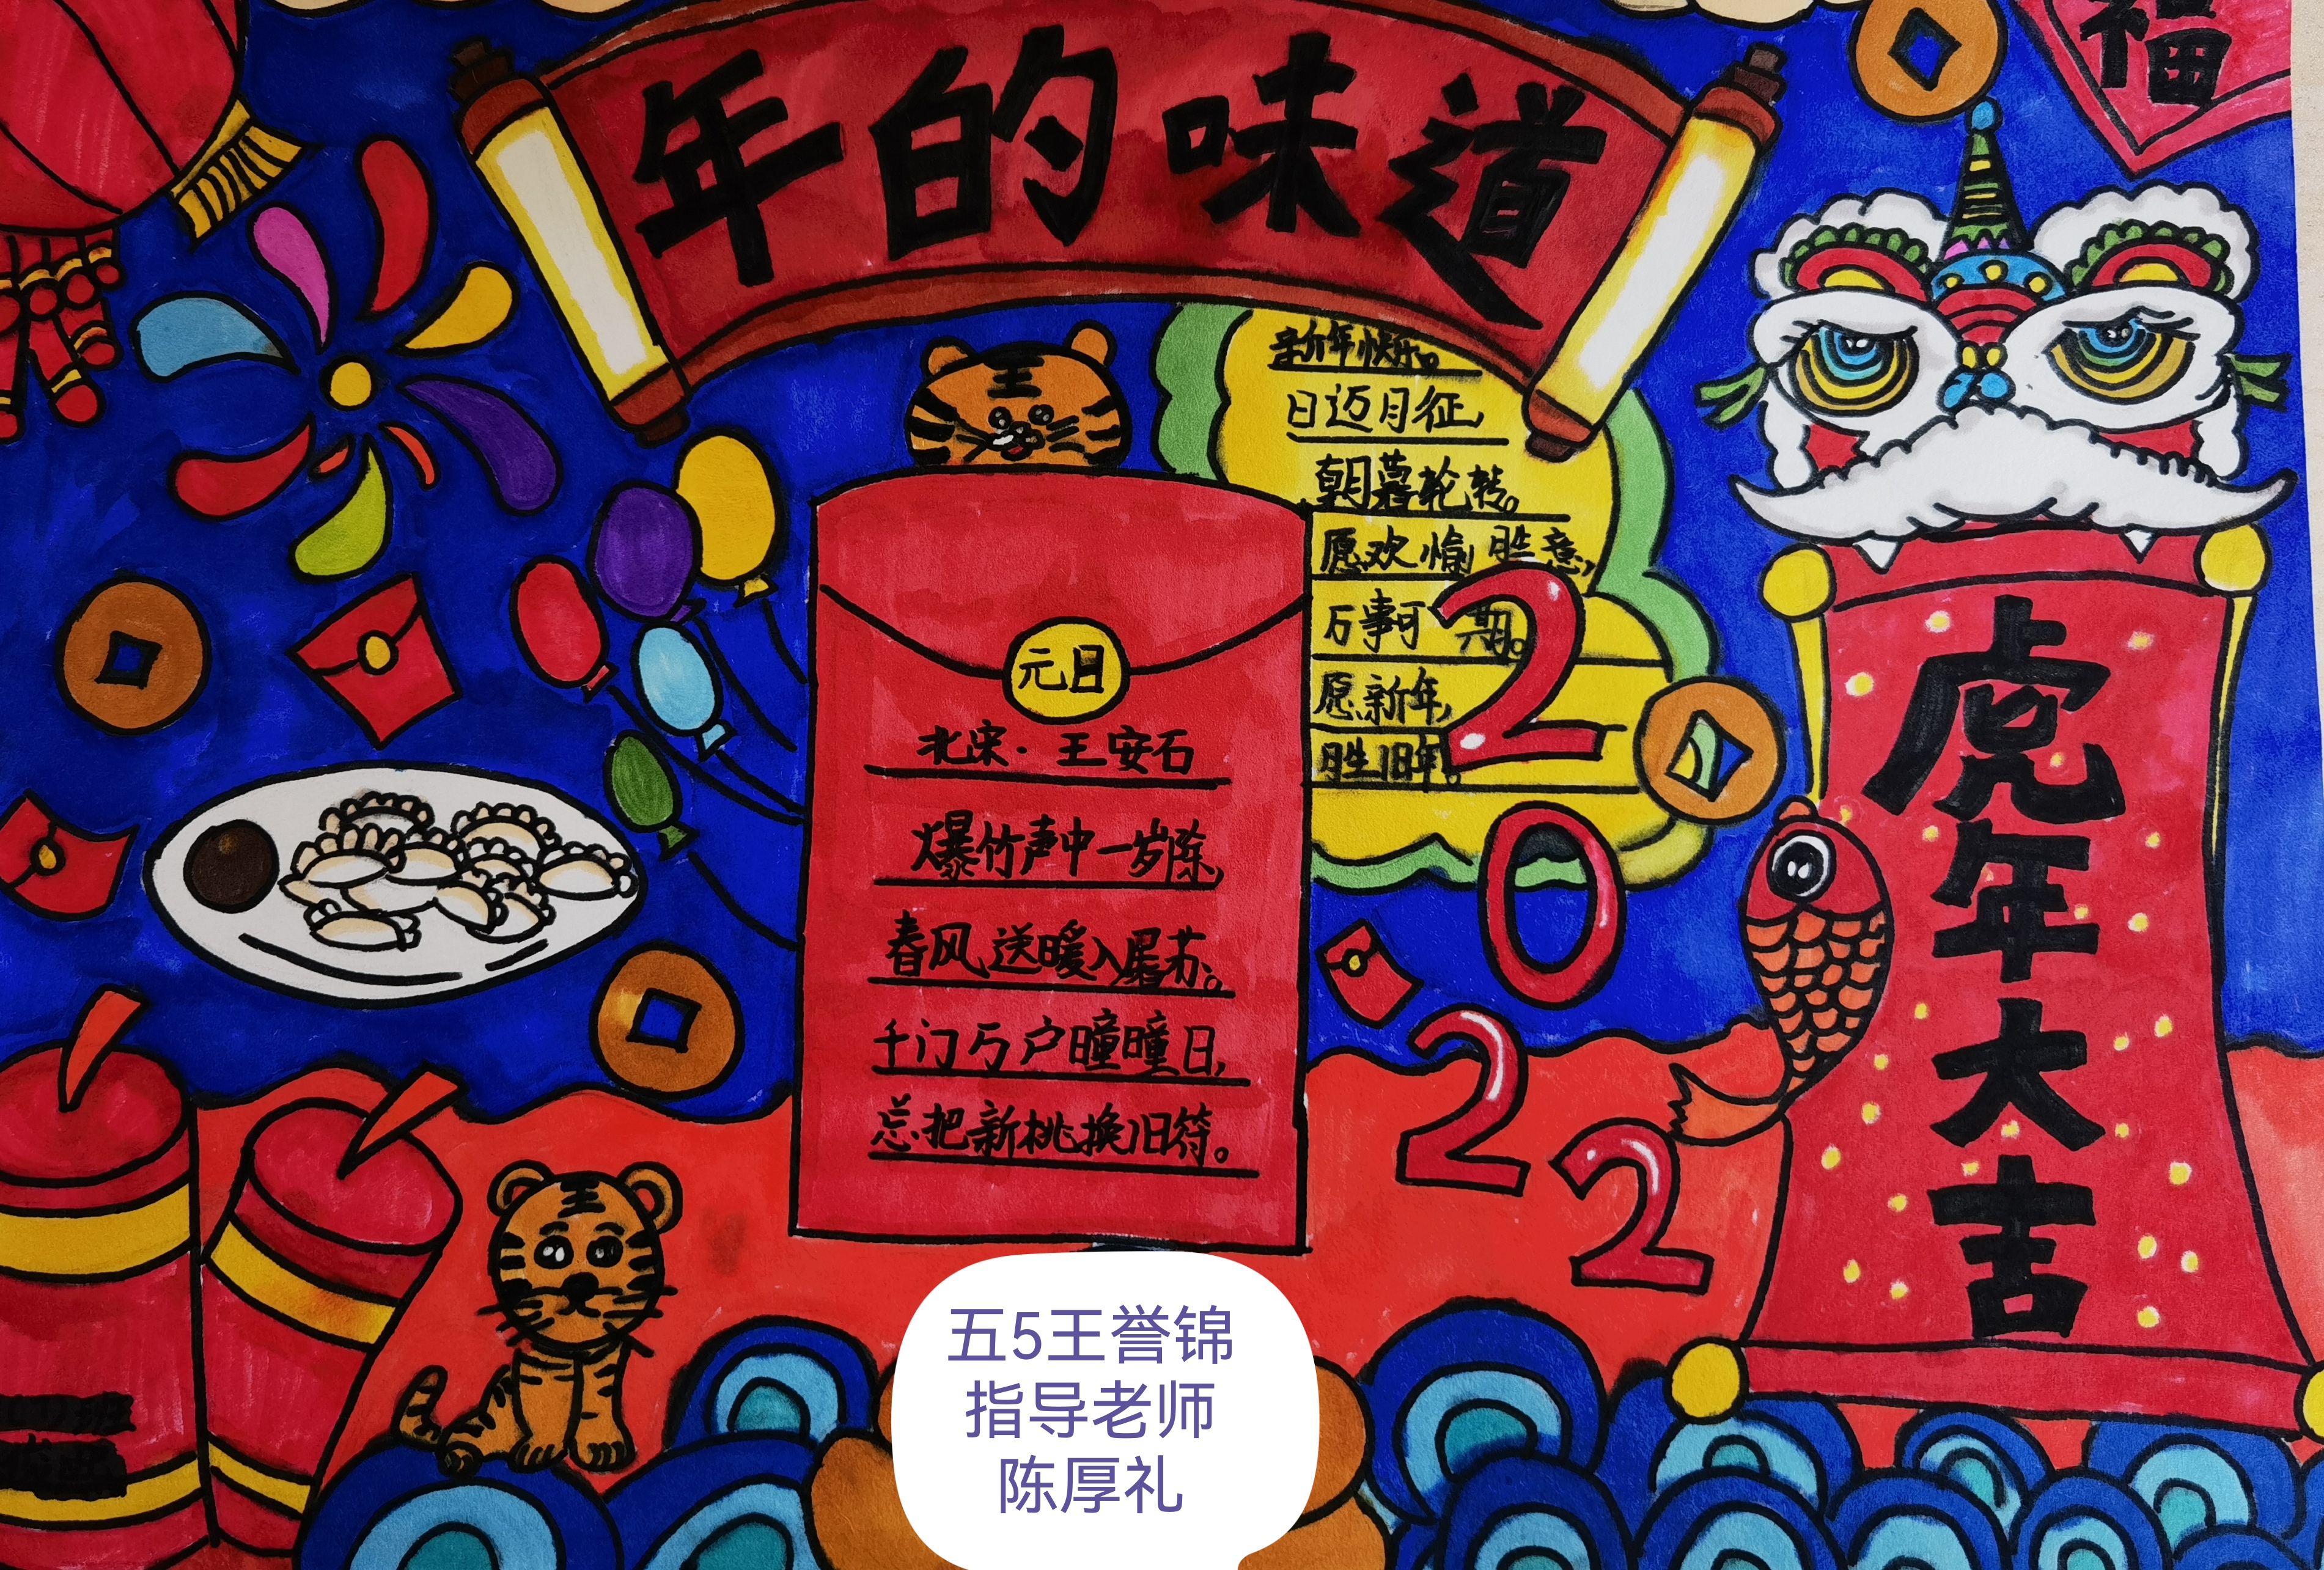 年的味道
福
王
新年快乐。
日迈月征,
朝暮轮转。
愿欢愉胜意,
万事可期。
愿新年,
胜旧年。
元日
北宋·王安石
爆竹声中一岁除,
春风送暖入屠苏。
千门万户曈曈日,
总把新桃换旧符。
2022
虎年大吉
王
五5王誉锦
指导老师
陈厚礼